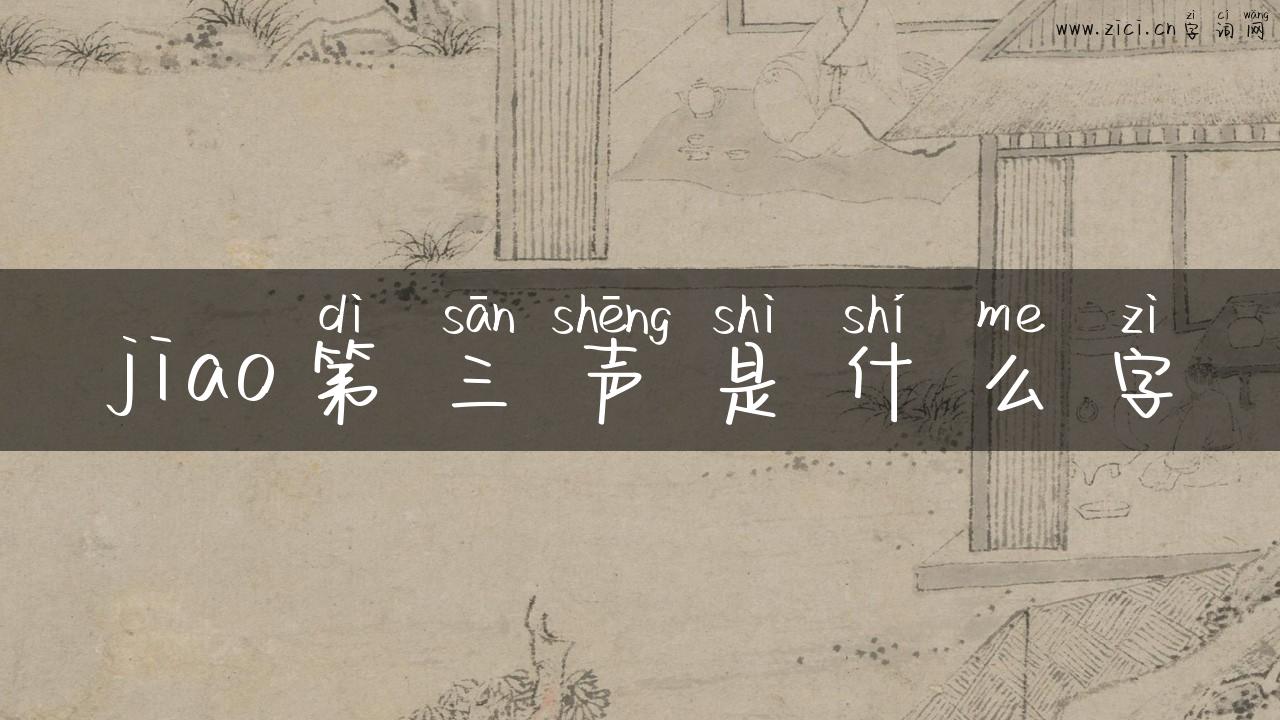 zì cí wǎng
www.zici.cn 字 词 网
dì sān shēng shì shí me zì
jiao 第 三 声 是 什 么 字